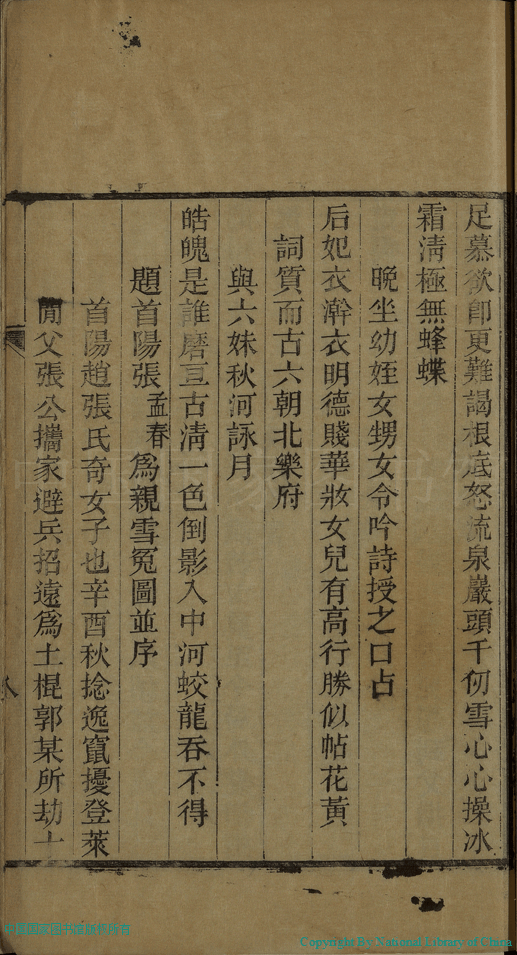 足慕欲卽更難謁根底怒流泉巖頭千仞雪心心操冰
霜淸極無蜂蝶
晩坐幼姪女甥女令吟詩授之口占
后妃衣澣衣明德賤華妝女兒有高行勝似帖花黃
詞質而古六朝北樂府
與六妹秋河詠月
皓魄是誰磨亘古淸一色倒影入中河蛟龍吞不得
題首陽張孟春爲親雪冤圖並序
首陽趙張氏奇女子也辛酉秋捻逸竄擾登萊
間父張公攜家避兵招遠爲土棍郭某所劫十
八
中國国家图书馆制作所有
Copyright By National Library of China